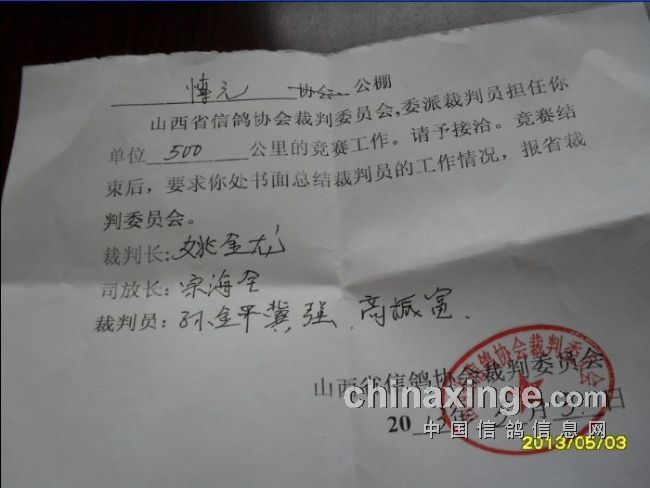 博元 协会 公棚
山西省信鸽协会裁判委员会,委派裁判员担任你
单位 500 公里的竞赛工作。请予接洽。竞赛结
束后，要求你处书面总结裁判员的工作情况，报省裁
判委员会。
裁判长:姚金龙
司放长:宗海全
裁判员:孙金平 冀强、高振富.
山西省信鸽协会裁判委员会
2012年 月 日
chinaxinge.com
中国信鸽信息网
2013/05/03